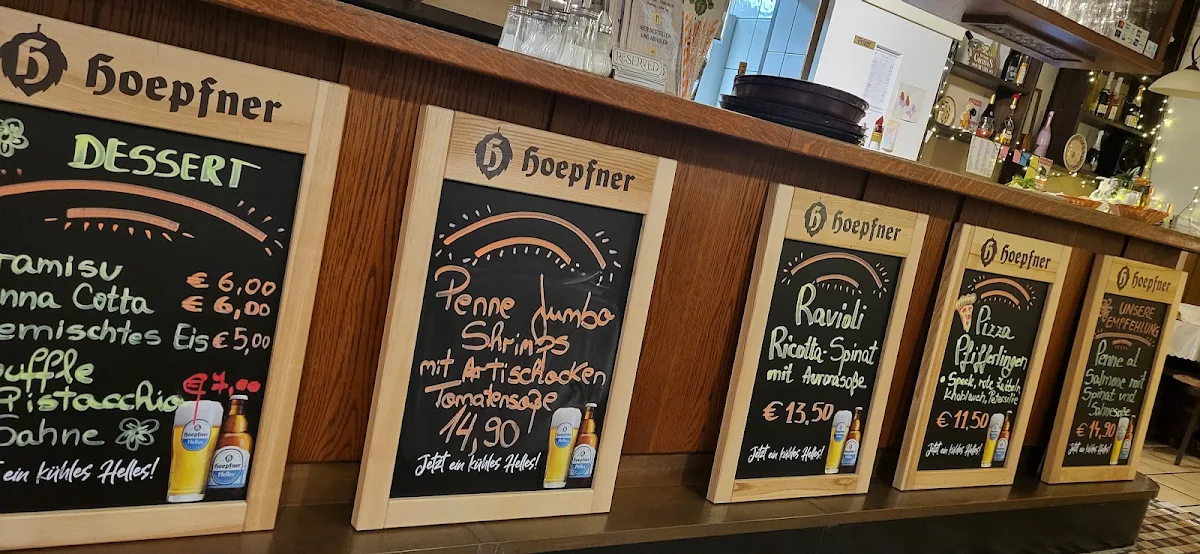 hoepfner
DESSERT
ramisu € 6,00
nna Cotta € 6,00
emischtes Eis € 5,00
uffle
Pistacchio € 7,00
Sahne
ein kühles Helles!
hoepfner
Penne Jumbo
Shrimps
mit Artischocken
Tomatensoße
14,90
Jetzt ein kühles Helles!
hoepfner
Ravioli
Ricotta-Spinat
mit Aurorasoße
€ 13,50
Jetzt ein kühles Helles!
hoepfner
Pizza
Pfifferlingen
• Speck, rote Zwiebeln,
Knoblauch, Petersilie
€ 11,50
Jetzt ein kühles Helles!
hoepfner
UNSERE
EMPFEHLUNG
Penne al
Salmone mit
Spinat und
Sahnesoße
€ 14,90
Jetzt ein kühles Helles!
RESERVED